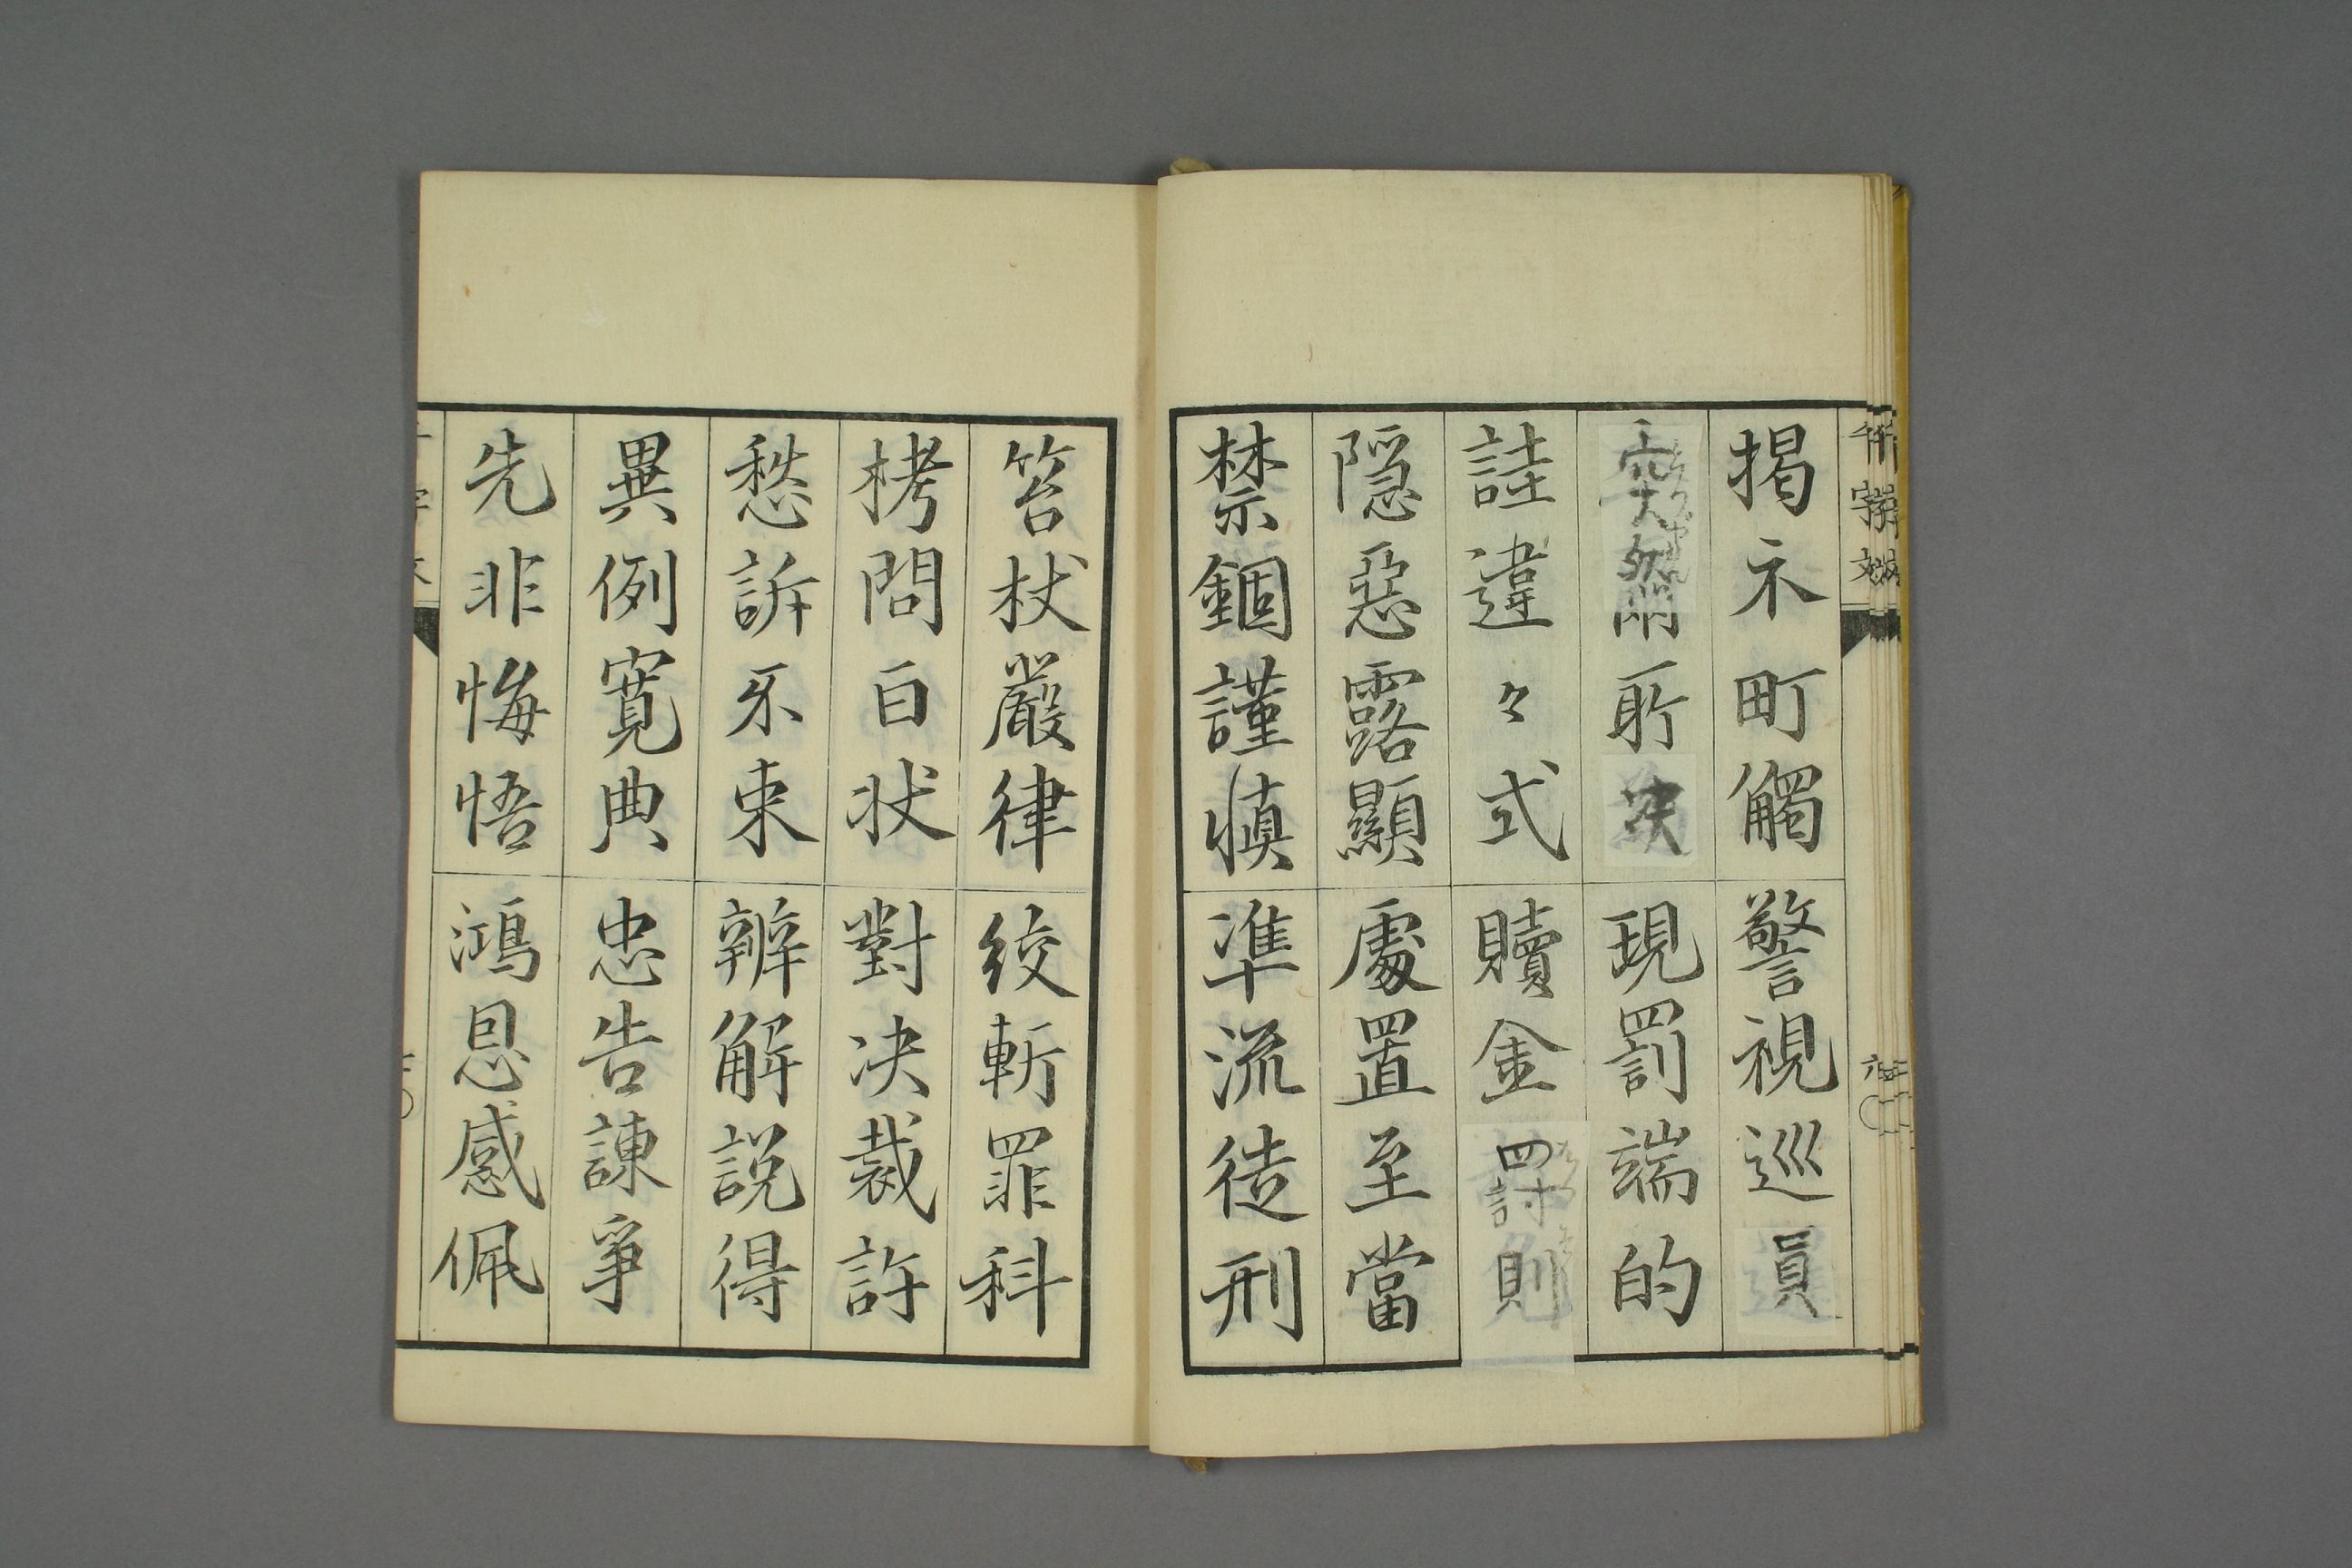 掲示町觸警視巡員
突然聞所決現罰端的
詿違々式贖金罰則
隠惡露顯處置至當
禁錮謹慎準流徒刑
笞杖嚴律絞斬罪科
栲問白状對决裁許
愁訴不束辨解説得
異例寛典忠告諫爭
先非悔悟鴻恩感佩